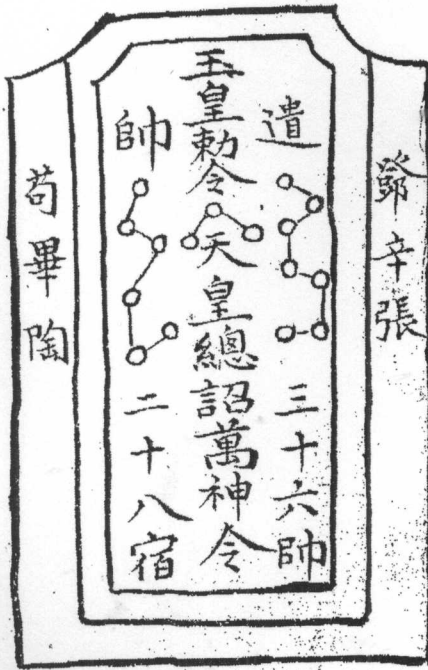 鄧辛張
遣
三十六帥
玉皇勅令天皇總詔萬神令
帥
二十八宿
苟畢陶